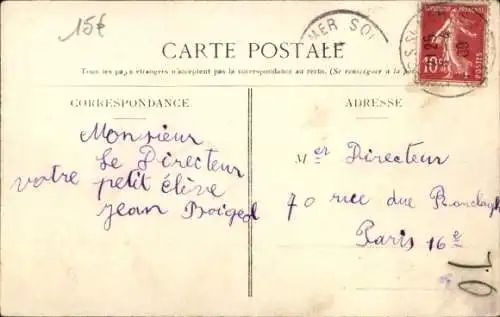 15€
MER SO
CARTE POSTALE
Tous les pays étrangers n'acceptent pas la correspondance au recto. (Se renseigner à la
CORRESPONDANCE
ADRESSE
REPUBLIQUE FRANÇAISE
10
POSTES
Monsieur
Le Directeur
votre petit élève
Jean
Mer Directeur
70 rue du Ranelagh
Paris 16e